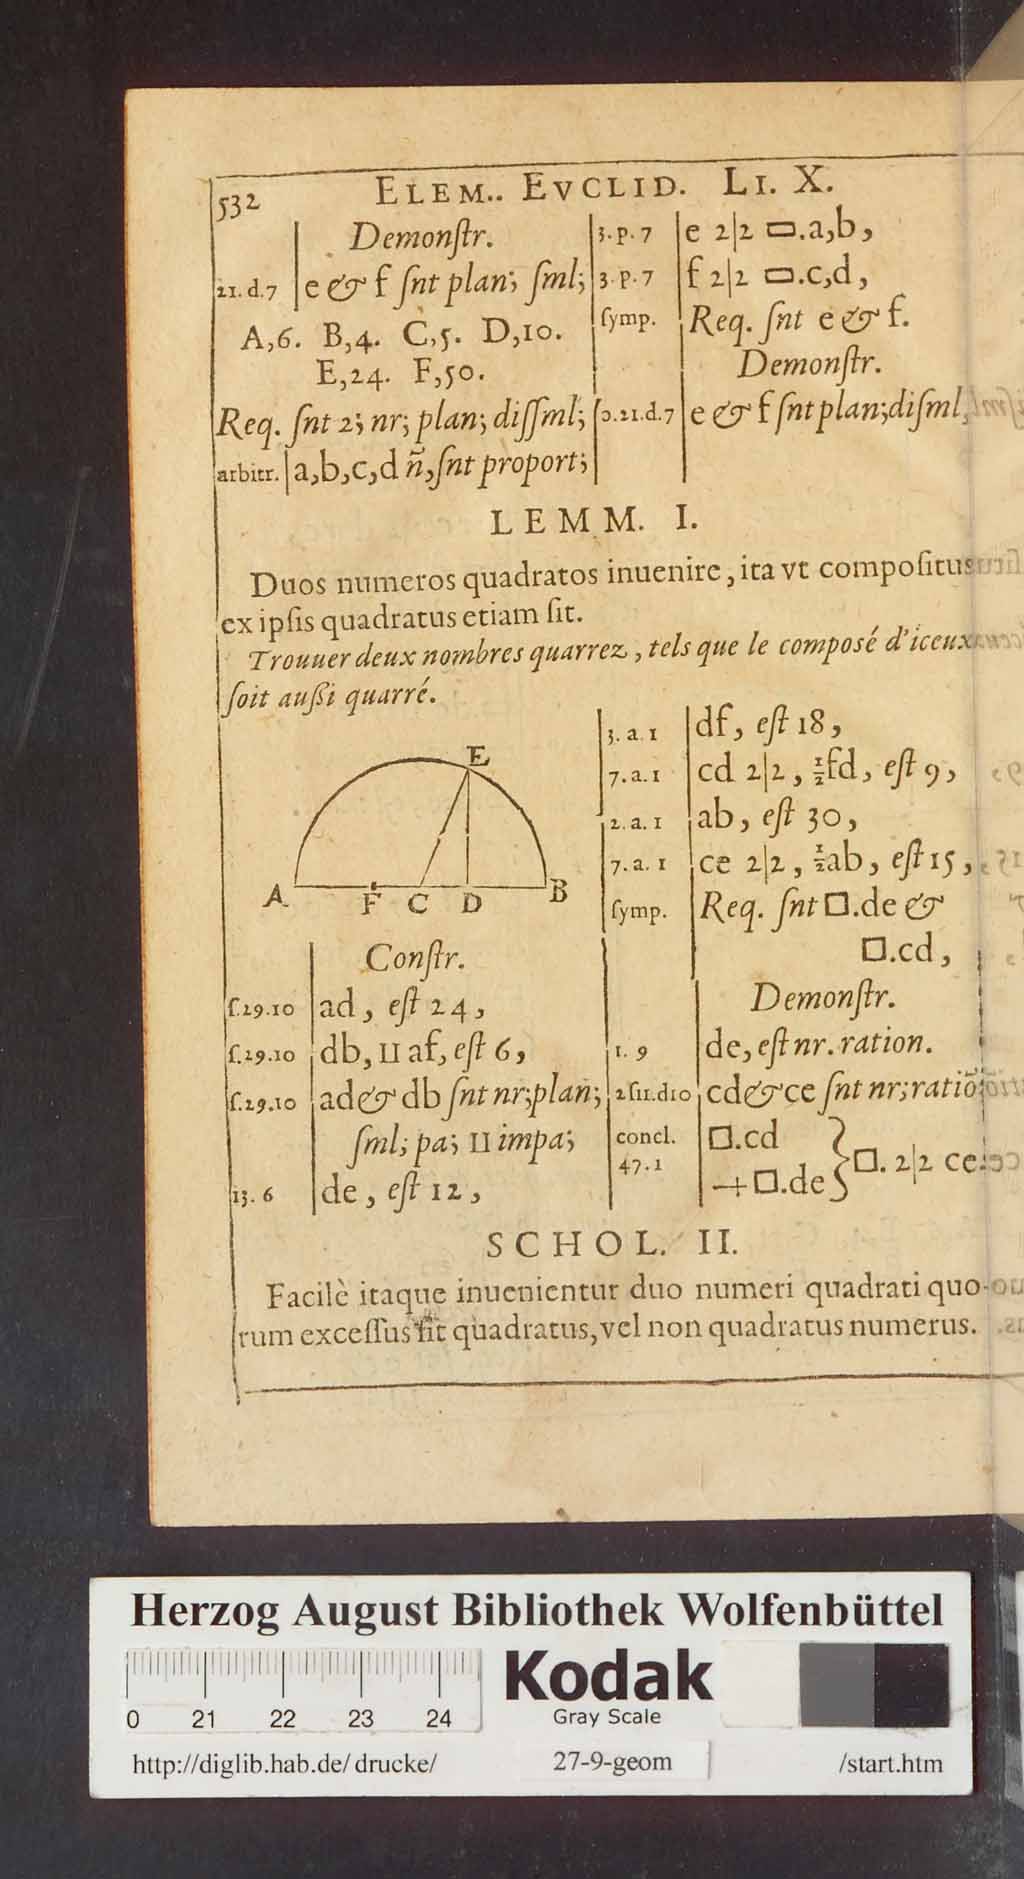 532 ELEM.. EVCLID. LI. X.
Demonſtr.
21. d. 7 e & f ſnt plan; ſml;
A,6. B,4. C,5. D,10.
E,24. F,50.
Req. ſnt 2; nr; plan; diſſml;
arbitr. a,b,c,d ñ, ſnt proport;
3. p. 7 e 2|2 ▭.a,b,
3. p. 7 f 2|2 ▭.c,d,
ſymp. Req. ſnt e & f.
Demonſtr.
21.d.7 e & f ſnt plan; diſml
LEMM. I.
Duos numeros quadratos inuenire, ita vt compoſitus
ex ipſis quadratus etiam ſit.
Trouuer deux nombres quarrez, tels que le composé d'iceux
ſoit auſſi quarré.
E
A F C D B
Conſtr.
ſ.29.10 ad, eſt 24,
ſ.29.10 db, II af, eſt 6,
ſ.29.10 ad & db ſnt nr; plan;
ſml; pa; II impa;
13. 6 de, eſt 12,
3. a. 1 df, eſt 18,
7. a. 1 cd 2|2, ½fd, eſt 9,
2. a. 1 ab, eſt 30,
7. a. 1 ce 2|2, ½ab, eſt 15,
ſymp. Req. ſnt □.de &
□.cd,
Demonſtr.
1. 9 de, eſt nr. ration.
2ſ11.d10 cd & ce ſnt nr; ratiō;
concl. □.cd
47. 1 +□.de } □. 2|2 ce.
SCHOL. II.
Facilè itaque inuenientur duo numeri quadrati quo-
rum exceſſus ſit quadratus, vel non quadratus numerus.
Herzog August Bibliothek Wolfenbüttel
0 21 22 23 24
Kodak
Gray Scale
http://diglib.hab.de/drucke/ 27-9-geom /start.htm